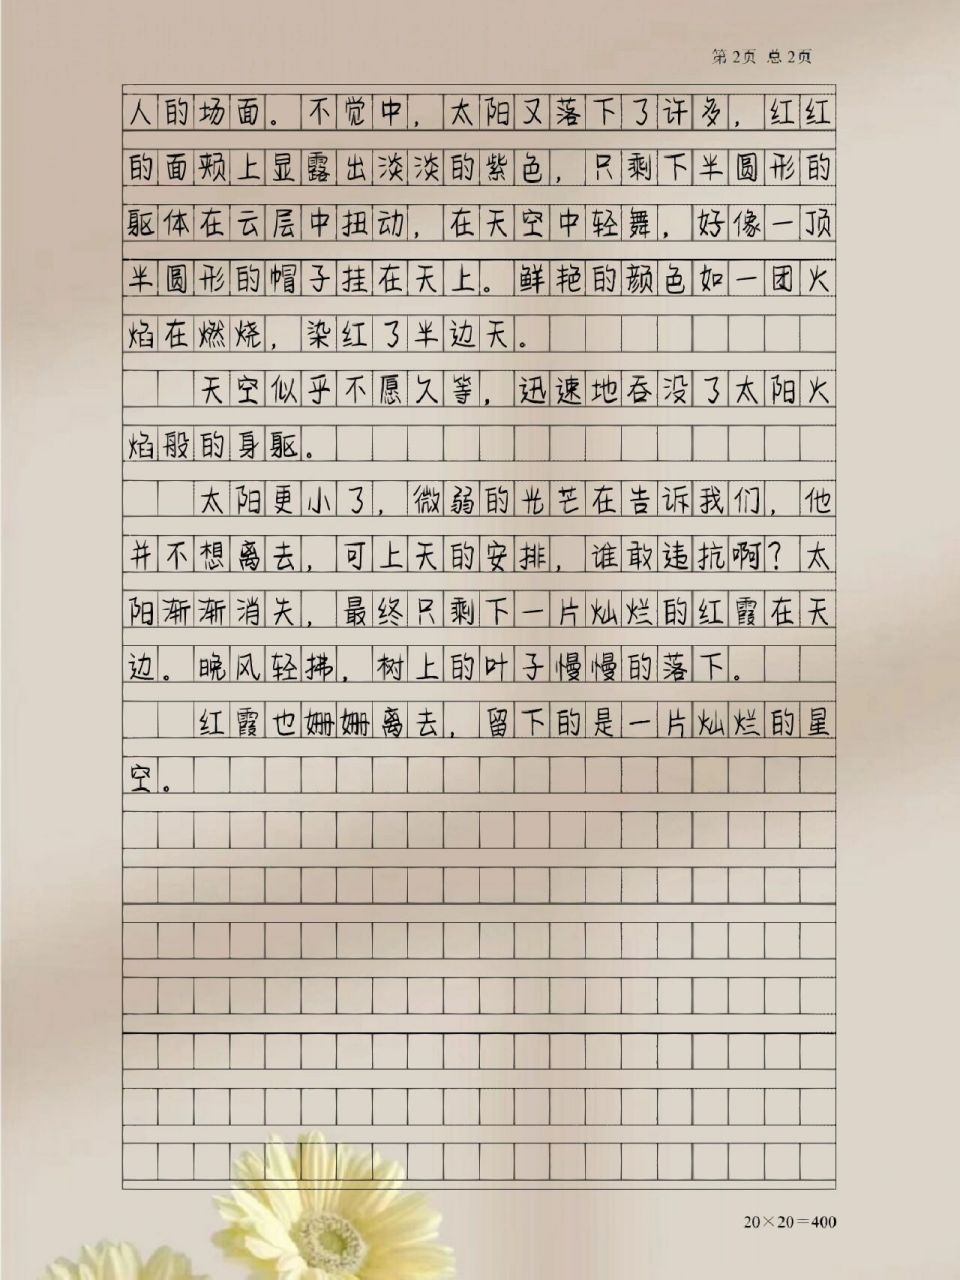 第2页 总2页
人的场面。不觉中，太阳又落下了许多，红红
的面颊上显露出淡淡的紫色，只剩下半圆形的
躯体在云层中扭动，在天空中轻舞，好像一顶
半圆形的帽子挂在天上。鲜艳的颜色如一团火
焰在燃烧，染红了半边天。
天空似乎不愿久等，迅速地吞没了太阳火
焰般的身躯。
太阳更小了，微弱的光芒在告诉我们，他
并不想离去，可上天的安排，谁敢违抗啊？太
阳渐渐消失，最终只剩下一片灿烂的红霞在天
边。晚风轻拂，树上的叶子慢慢的落下。
红霞也姗姗离去，留下的是一片灿烂的星
空。
20×20=400